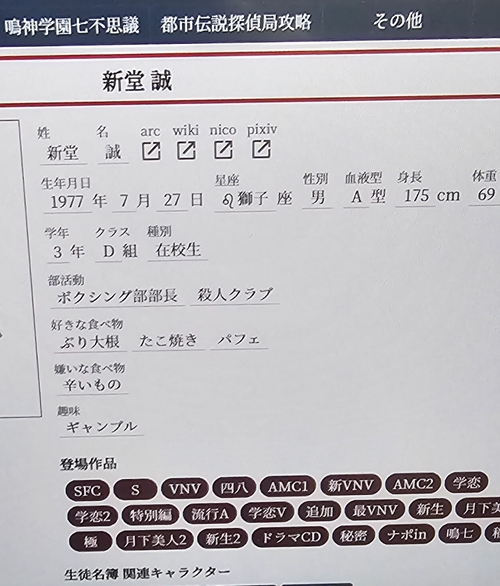 鳴神学園七不思議 都市伝説探偵局攻略 その他
新堂 誠
姓 名 arc wiki nico pixiv
新堂 誠
生年月日 星座 性別 血液型 身長 体重
1977 年 7 月 27 日 ♌獅子 座 男 A 型 175 cm 69
学年 クラス 種別
3 年 D 組 在校生
部活動
ボクシング部部長 殺人クラブ
好きな食べ物
ぶり大根 たこ焼き パフェ
嫌いな食べ物
辛いもの
趣味
ギャンブル
登場作品
SFC S VNV 四八 AMC1 新VNV AMC2 学恋
学恋2 特別編 流行A 学恋V 追加 最VNV 新生 月下美
極 月下美人2 新生2 ドラマCD 秘密 ナポin 鳴七
生徒名簿 関連キャラクター